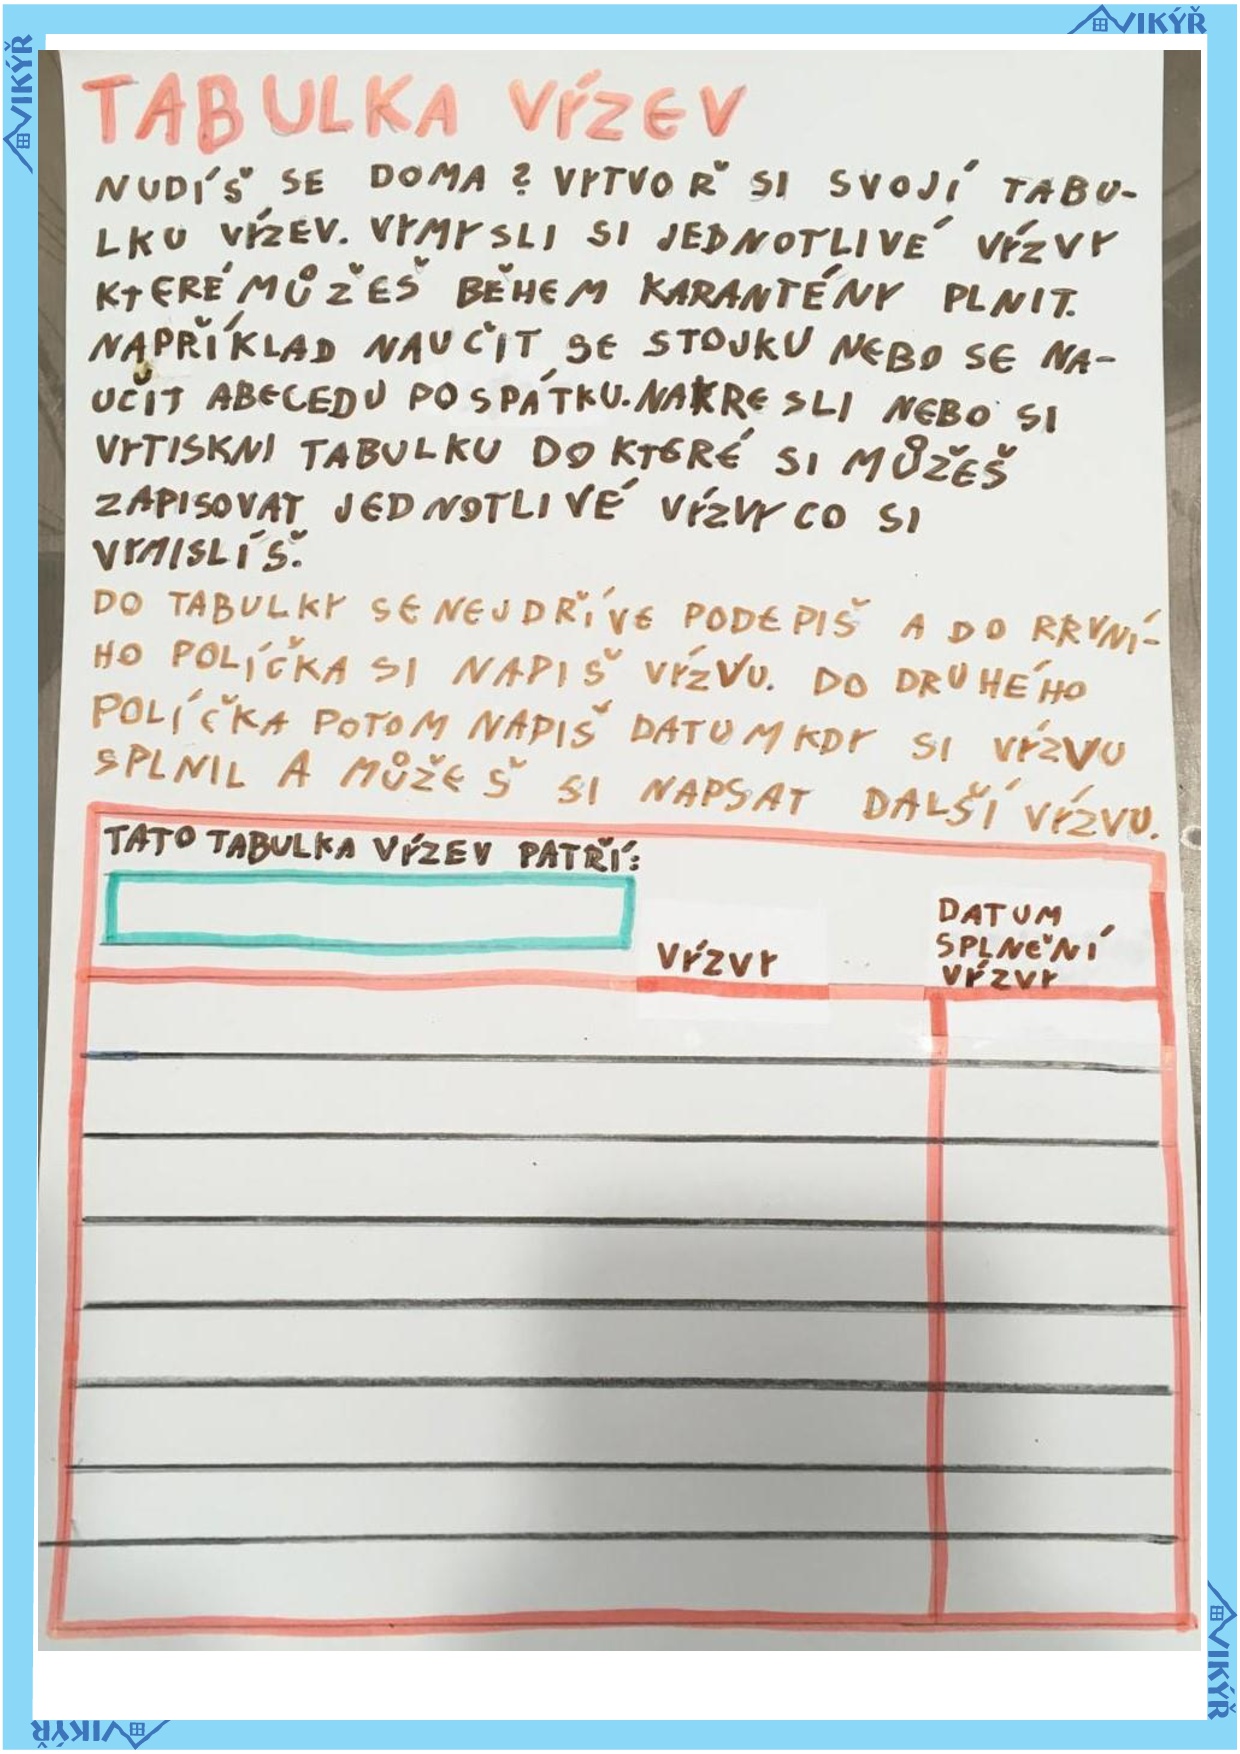 VIKÝŘ
VIKÝŘ
TABULKA VÝZEV
NUDÍŠ SE DOMA? VYTVOŘ SI SVOJÍ TABU-
LKU VÝZEV. VYMYSLI SI JEDNOTLIVÉ VÝZVY
KTERÉ MŮŽEŠ BĚHEM KARANTÉNY PLNIT.
NAPŘÍKLAD NAUČIT SE STOJKU NEBO SE NA-
UČIT ABECEDU POSPÁTKU. NAKRESLI NEBO SI
VYTISKNI TABULKU DO KTERÉ SI MŮŽEŠ
ZAPISOVAT JEDNOTLIVÉ VÝZVY CO SI
VYMISLÍŠ.
DO TABULKY SE NEJDŘÍVE PODEPIŠ A DO PRVNÍ-
HO POLÍČKA SI NAPIŠ VÝZVU. DO DRUHÉHO
POLÍČKA POTOM NAPIŠ DATUM KDY SI VÝZVU
SPLNIL A MŮŽEŠ SI NAPSAT DALŠÍ VÝZVU.
TATO TABULKA VÝZEV PATŘÍ:
VÝZVY
DATUM
SPLNĚNÍ
VÝZVY
VIKÝŘ
VIKÝŘ